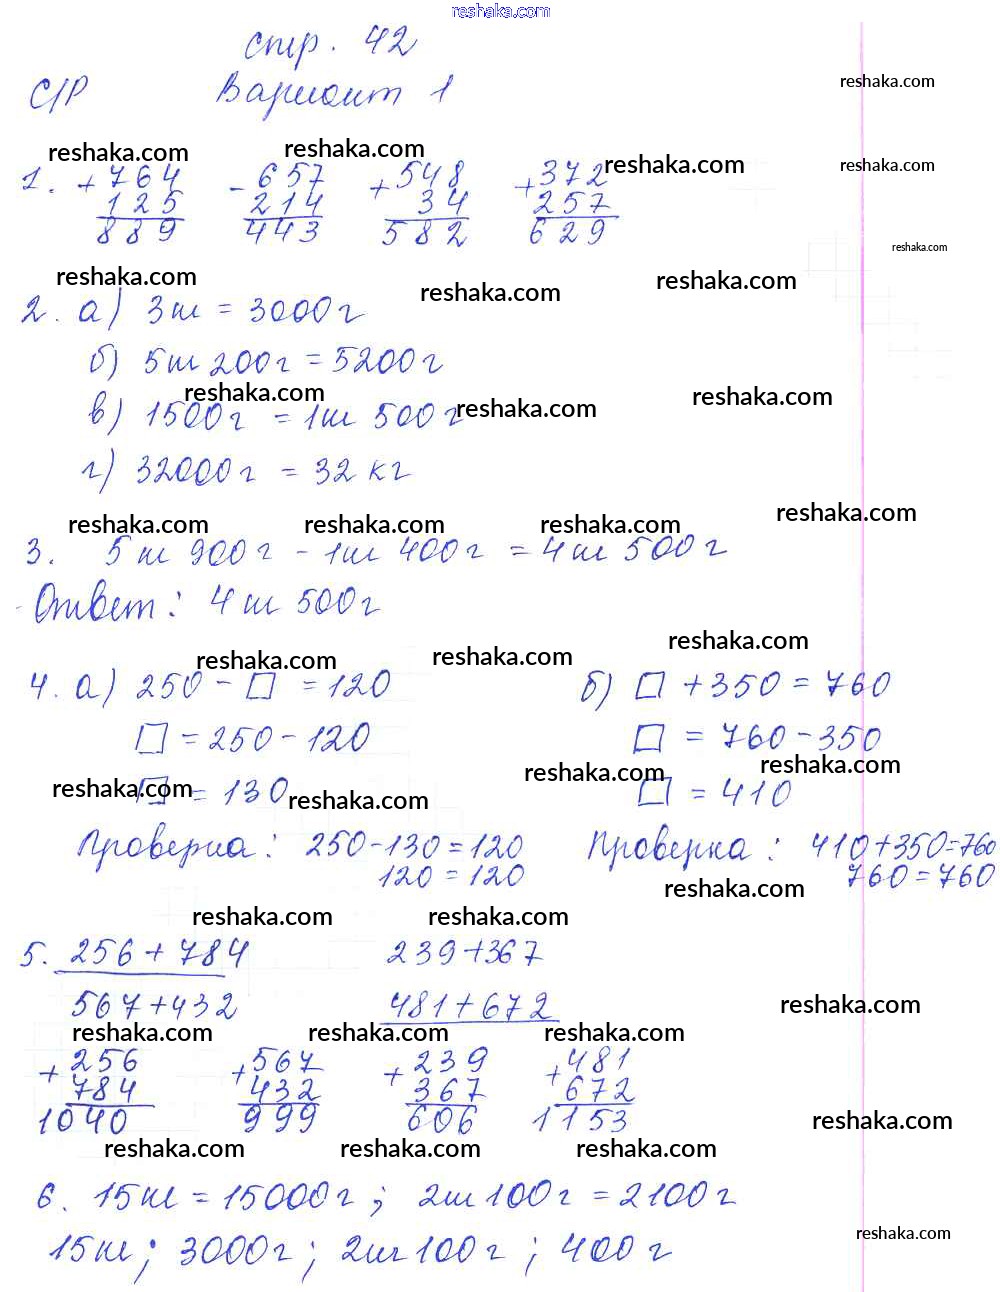 reshaka.com
стр. 42
С/Р Вариант 1
reshaka.com
reshaka.com reshaka.com reshaka.com reshaka.com
1. + 764 - 657 + 548 + 372
125 214 34 257
889 443 582 629
reshaka.com
reshaka.com reshaka.com reshaka.com
2. а) 3кг = 3000г
б) 5кг 200г = 5200г
reshaka.com reshaka.com reshaka.com
в) 1500г = 1кг 500г
г) 32000г = 32 кг
reshaka.com reshaka.com reshaka.com reshaka.com
3. 5кг 900г - 1кг 400г = 4кг 500г
Ответ: 4кг 500г
reshaka.com reshaka.com reshaka.com
4. а) 250 - □ = 120 б) □ + 350 = 760
□ = 250 - 120 □ = 760 - 350
reshaka.com reshaka.com reshaka.com reshaka.com
□ = 130 □ = 410
Проверка: 250 - 130 = 120 Проверка: 410 + 350 = 760
120 = 120 760 = 760
reshaka.com
reshaka.com reshaka.com
5. 256 + 784 239 + 367
567 + 432 481 + 672
reshaka.com
reshaka.com reshaka.com reshaka.com
+ 256 + 567 + 239 + 481
784 432 367 672
1040 999 606 1153
reshaka.com
reshaka.com reshaka.com reshaka.com
6. 15кг = 15000г; 2кг 100г = 2100г
15кг; 3000г; 2кг 100г; 400г
reshaka.com